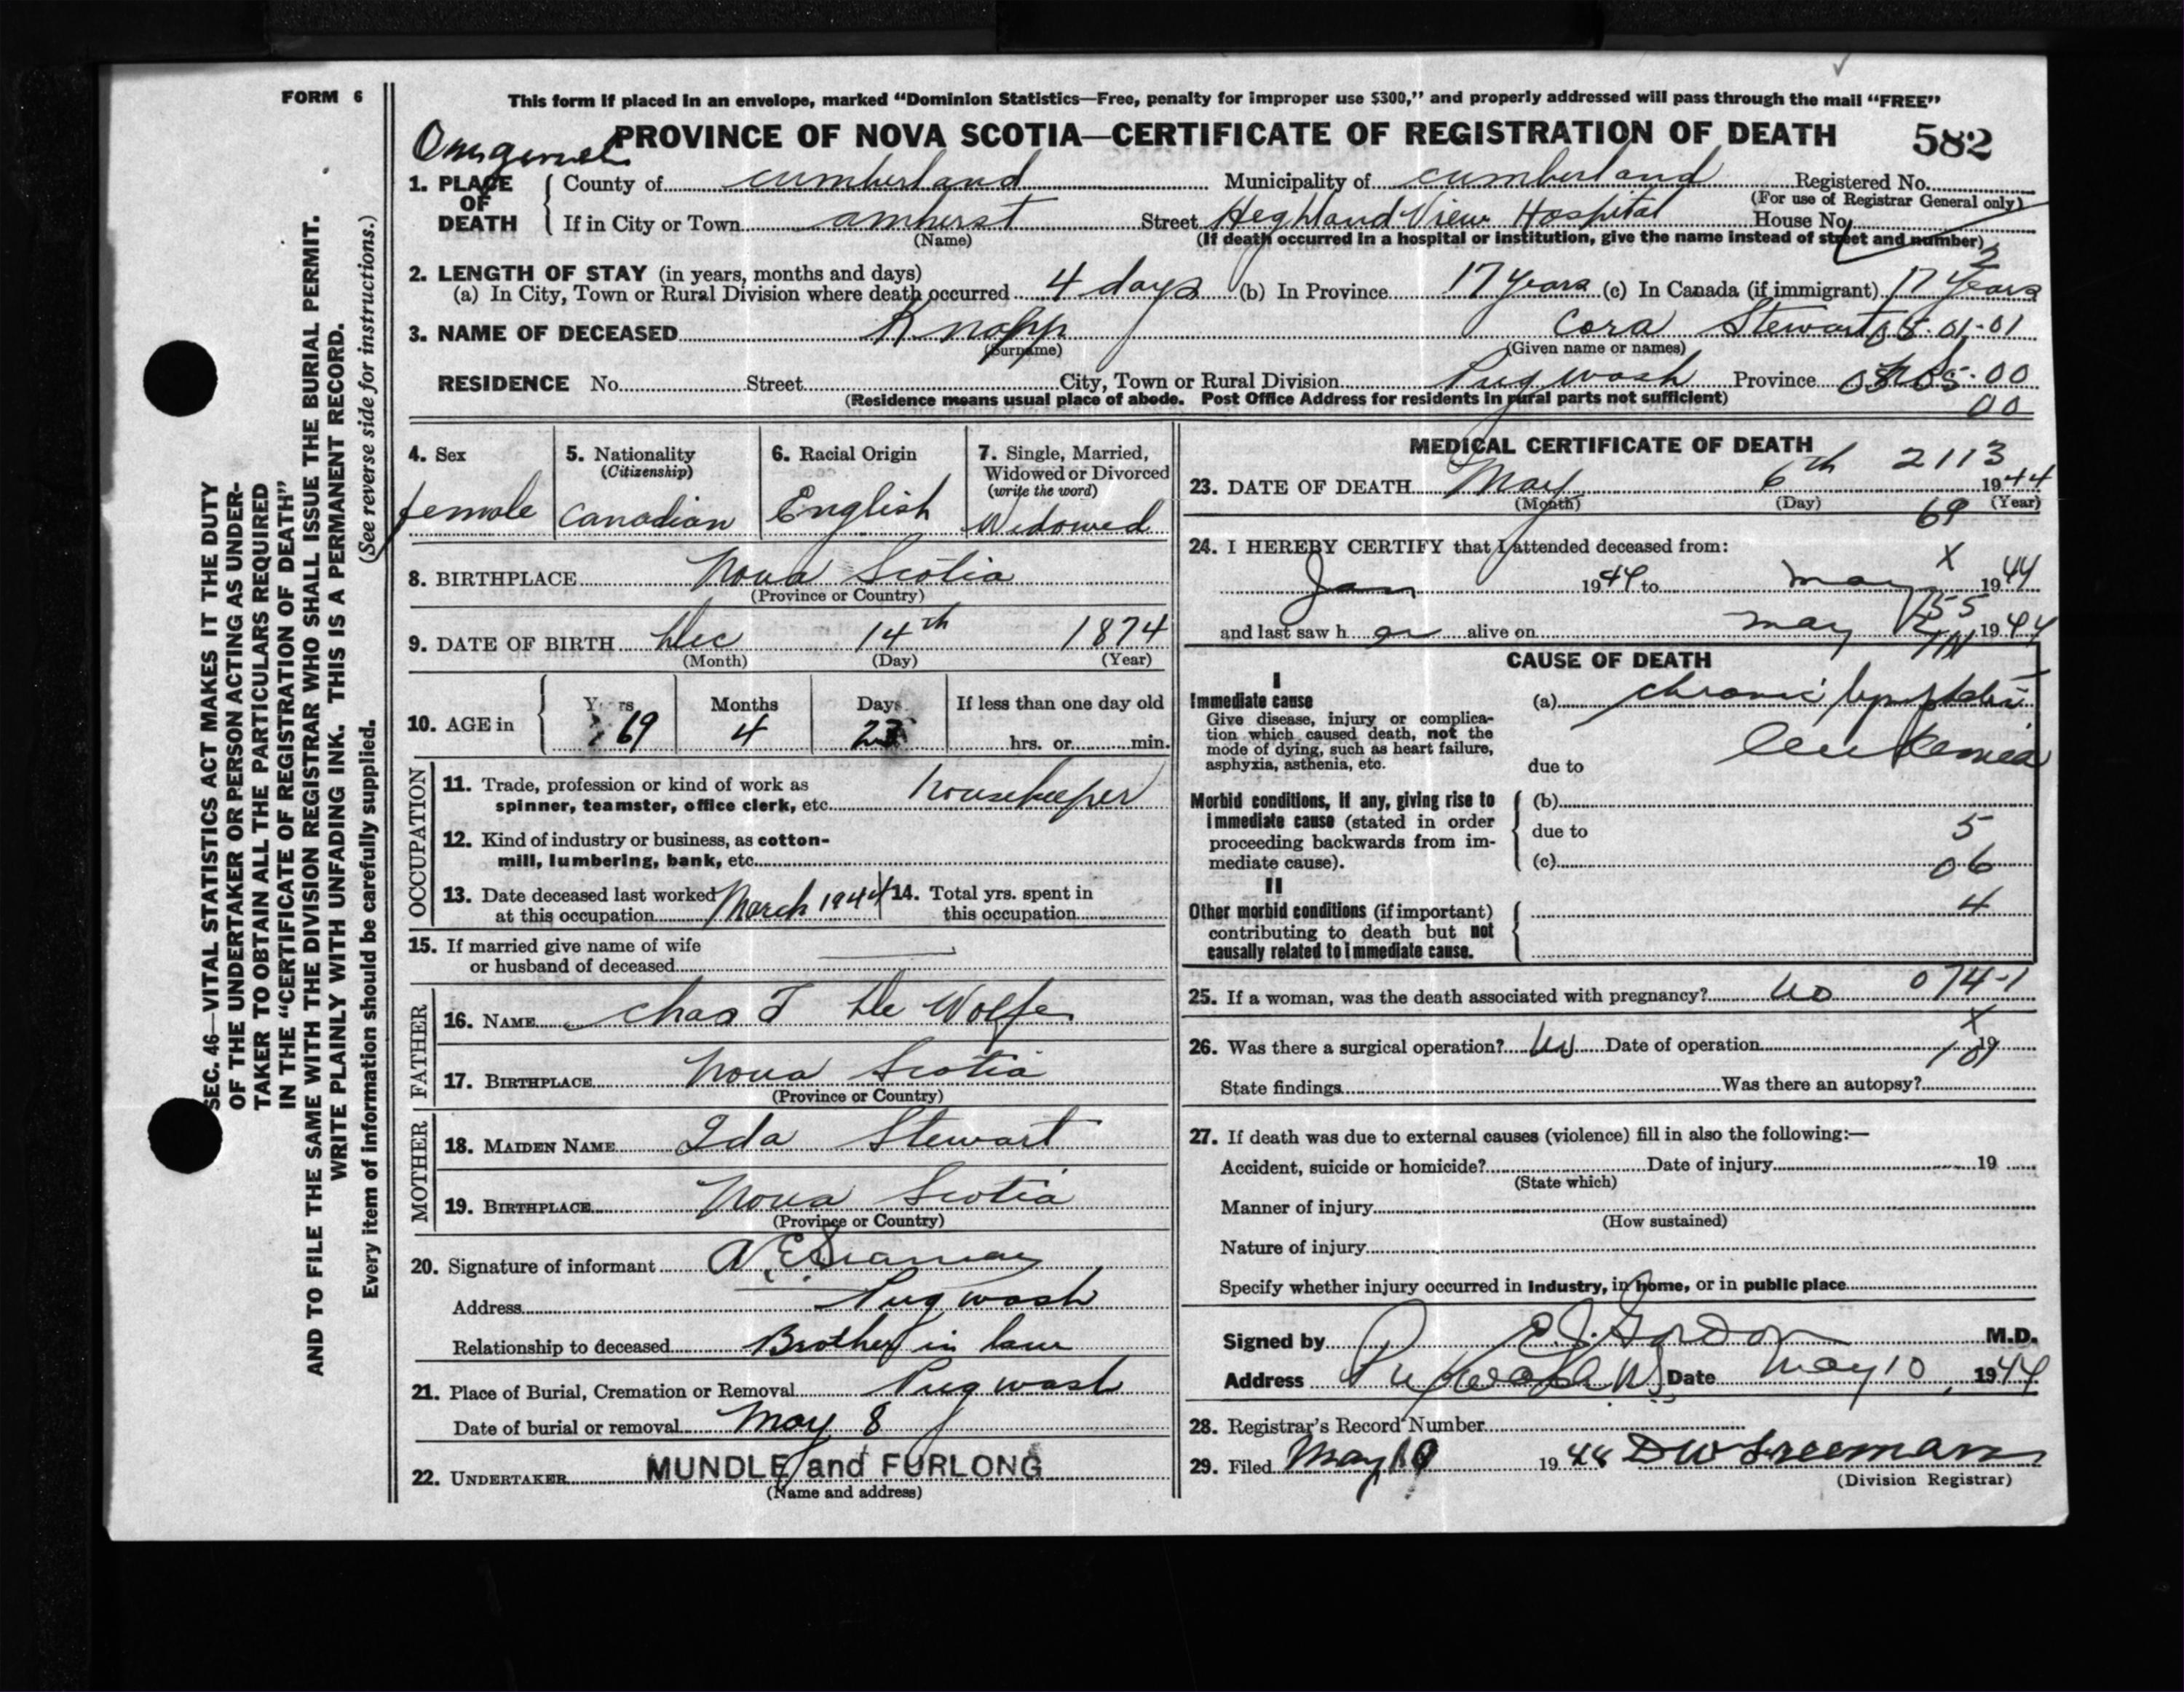 FORM 6
This form if placed in an envelope, marked “Dominion Statistics—Free, penalty for improper use $300,” and properly addressed will pass through the mail “FREE”
PROVINCE OF NOVA SCOTIA—CERTIFICATE OF REGISTRATION OF DEATH 582
1. PLACE OF DEATH County of Cumberland Municipality of Cumberland Registered No.
(For use of Registrar General only)
If in City or Town Amherst Street Heghland View Hospital House No.
(Name) (If death occurred in a hospital or institution, give the name instead of street and number)
2. LENGTH OF STAY (in years, months and days)
(a) In City, Town or Rural Division where death occurred 4 days (b) In Province 17 years (c) In Canada (if immigrant) 17 years
3. NAME OF DECEASED Knapp Cora Stewart 08-01-01
(Surname) (Given name or names)
RESIDENCE No. Street City, Town or Rural Division Pugwash Province NS 05-00
(Residence means usual place of abode. Post Office Address for residents in rural parts not sufficient) 00
4. Sex female
5. Nationality (Citizenship) Canadian
6. Racial Origin English
7. Single, Married, Widowed or Divorced (write the word) Widowed
8. BIRTHPLACE Nova Scotia
(Province or Country)
9. DATE OF BIRTH Dec 14th 1874
(Month) (Day) (Year)
10. AGE in Years 69 Months 4 Days 23 If less than one day old hrs. or min.
OCCUPATION
11. Trade, profession or kind of work as
spinner, teamster, office clerk, etc. Housekeeper
12. Kind of industry or business, as cotton-
mill, lumbering, bank, etc.
13. Date deceased last worked at this occupation March 1944 14. Total yrs. spent in this occupation
15. If married give name of wife
or husband of deceased
FATHER
16. NAME Chas T De Wolfe
17. BIRTHPLACE Nova Scotia
(Province or Country)
MOTHER
18. MAIDEN NAME Ida Stewart
19. BIRTHPLACE Nova Scotia
(Province or Country)
20. Signature of informant A. E.
Address Pugwash
Relationship to deceased Brother in law
21. Place of Burial, Cremation or Removal Pugwash
Date of burial or removal May 8
22. UNDERTAKER MUNDLE and FURLONG
(Name and address)
MEDICAL CERTIFICATE OF DEATH
2113
23. DATE OF DEATH May 6th 1944
(Month) (Day) (Year)
69
24. I HEREBY CERTIFY that I attended deceased from:
X
Jan 1944 to May 1944
55
and last saw h er alive on May 1944
CAUSE OF DEATH
I
Immediate cause (a) chronic lymphatic
Give disease, injury or complica-
tion which caused death, not the
mode of dying, such as heart failure,
asphyxia, asthenia, etc. due to leukemia
Morbid conditions, if any, giving rise to (b)
immediate cause (stated in order due to 5
proceeding backwards from im-
mediate cause). (c) 06
II
Other morbid conditions (if important) 4
contributing to death but not
causally related to immediate cause.
25. If a woman, was the death associated with pregnancy? no 074-1
X
26. Was there a surgical operation? no Date of operation 19
State findings Was there an autopsy?
27. If death was due to external causes (violence) fill in also the following:—
Accident, suicide or homicide? Date of injury 19
(State which)
Manner of injury
(How sustained)
Nature of injury
Specify whether injury occurred in industry, in home, or in public place
Signed by E J Gordon M.D.
Address Pugwash NS Date May 10, 1944
28. Registrar's Record Number
29. Filed May 10 1944 D W Freeman
(Division Registrar)
SEC. 46—VITAL STATISTICS ACT MAKES IT THE DUTY
OF THE UNDERTAKER OR PERSON ACTING AS UNDER-
TAKER TO OBTAIN ALL THE PARTICULARS REQUIRED
IN THE “CERTIFICATE OF REGISTRATION OF DEATH”
AND TO FILE THE SAME WITH THE DIVISION REGISTRAR WHO SHALL ISSUE THE BURIAL PERMIT.
WRITE PLAINLY WITH UNFADING INK. THIS IS A PERMANENT RECORD.
Every item of information should be carefully supplied. (See reverse side for instructions.)